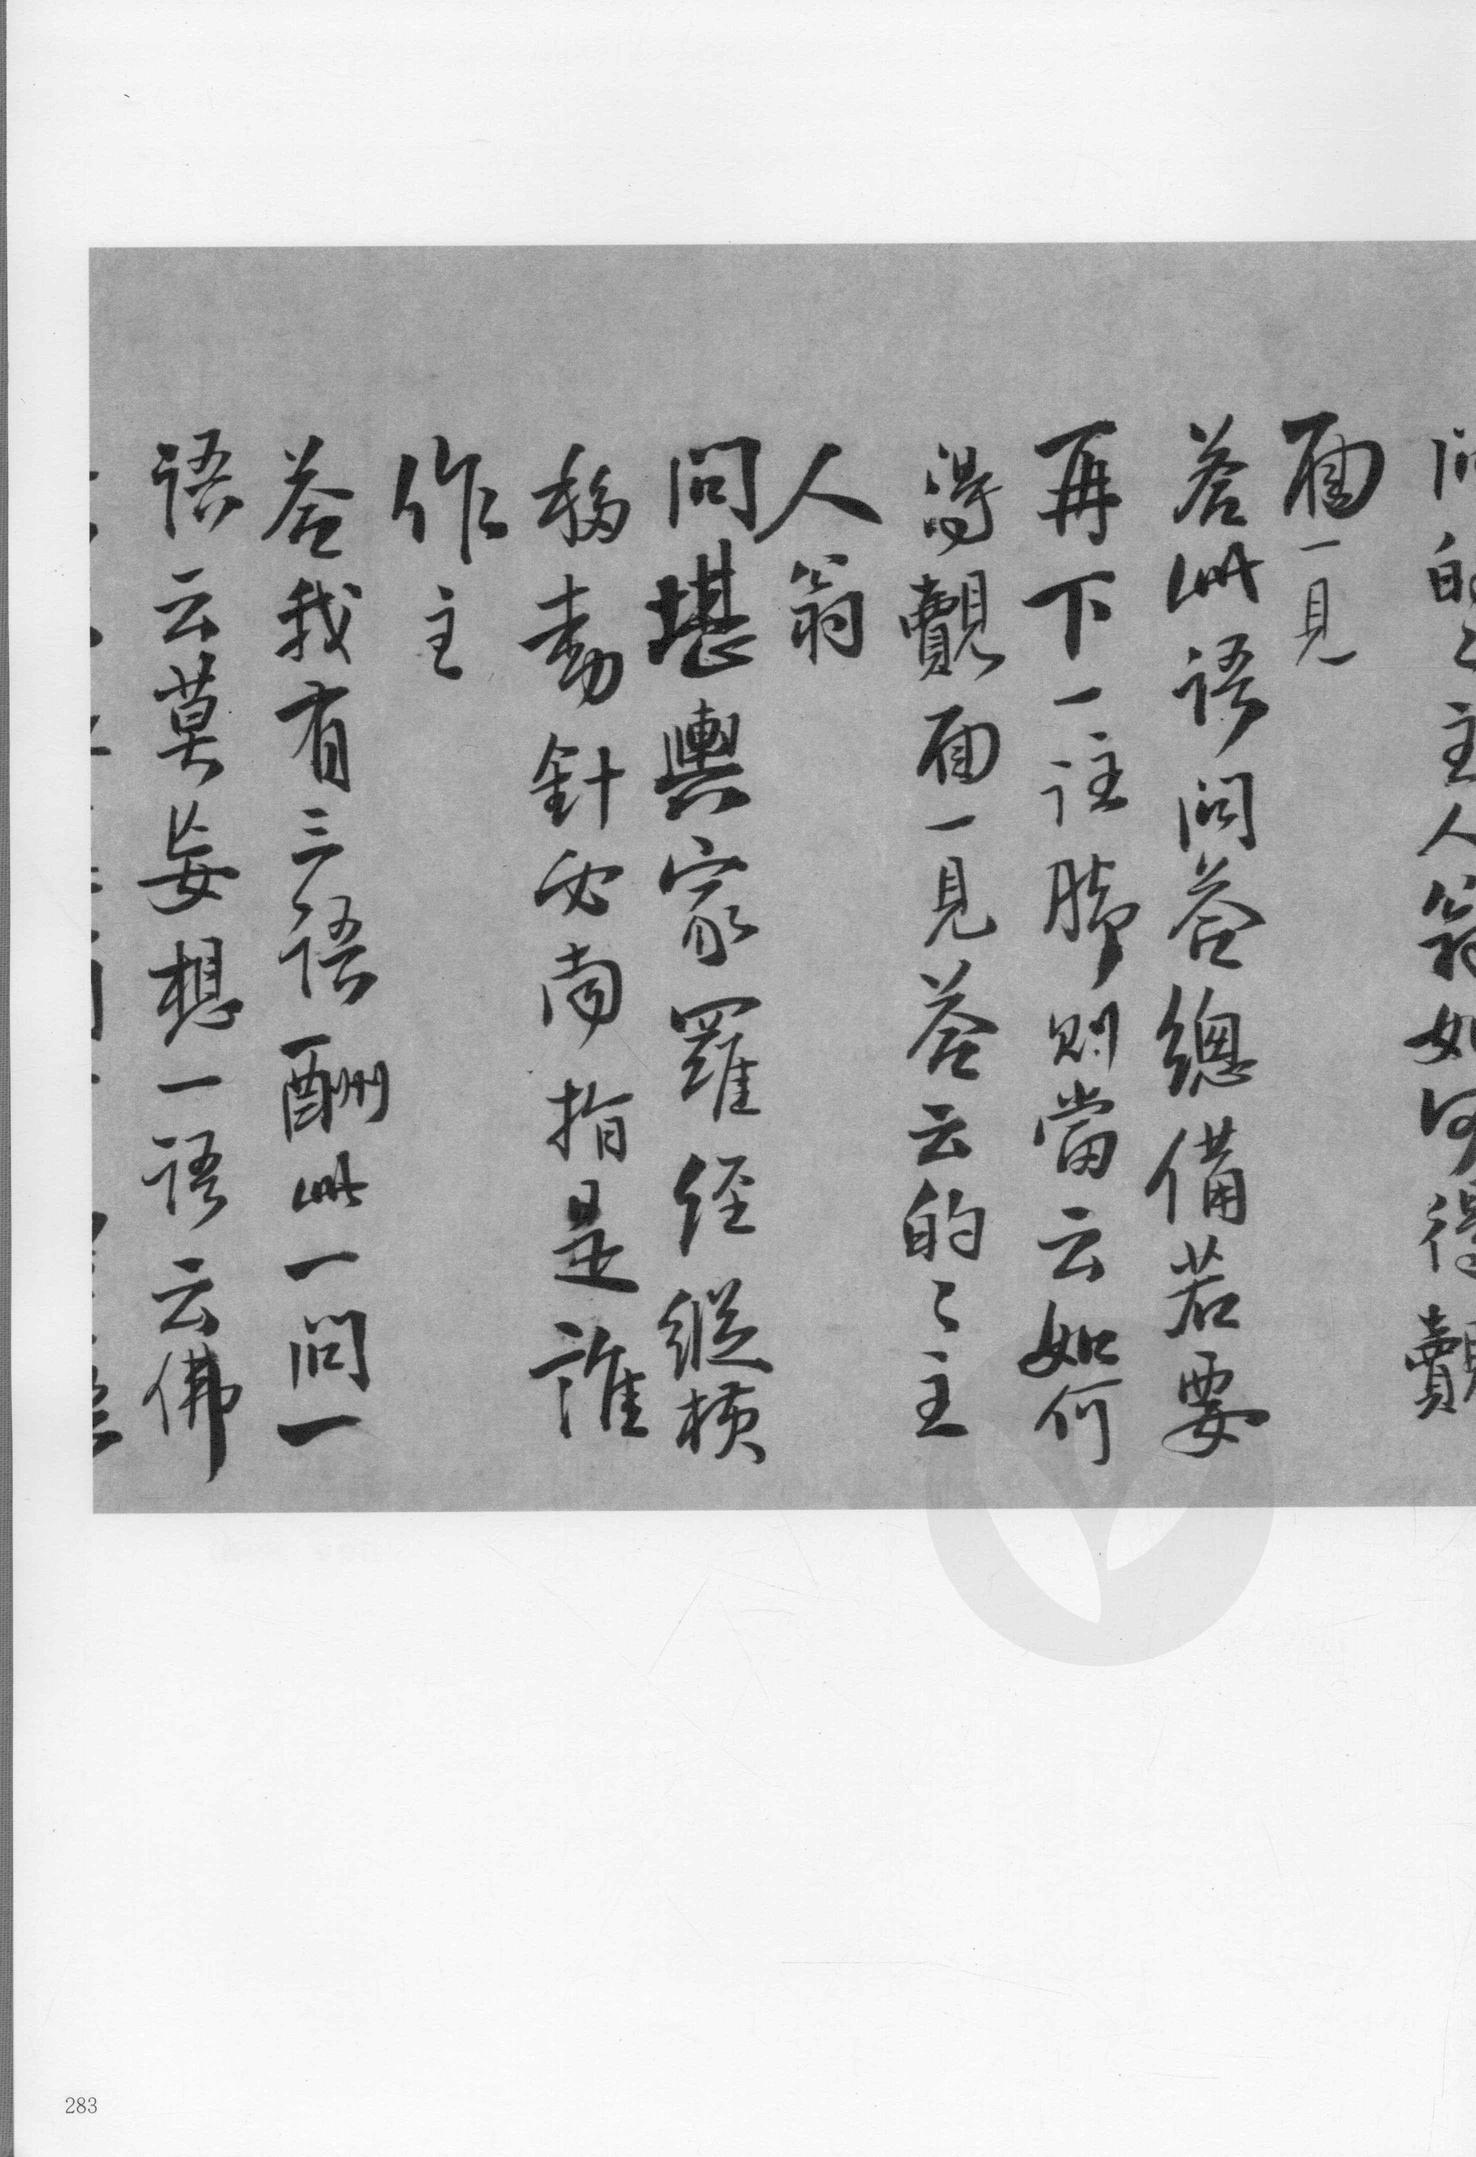 问的〻主人翁如何得覿
面一見
答此語問答總備若要
再下一註脚則當云如何
得覿面一見答云的〻主
人翁
問堪輿家羅経縱横
移動針必南指是誰
作主
答我有三語酬此一問一
語云莫妄想一語云佛
283